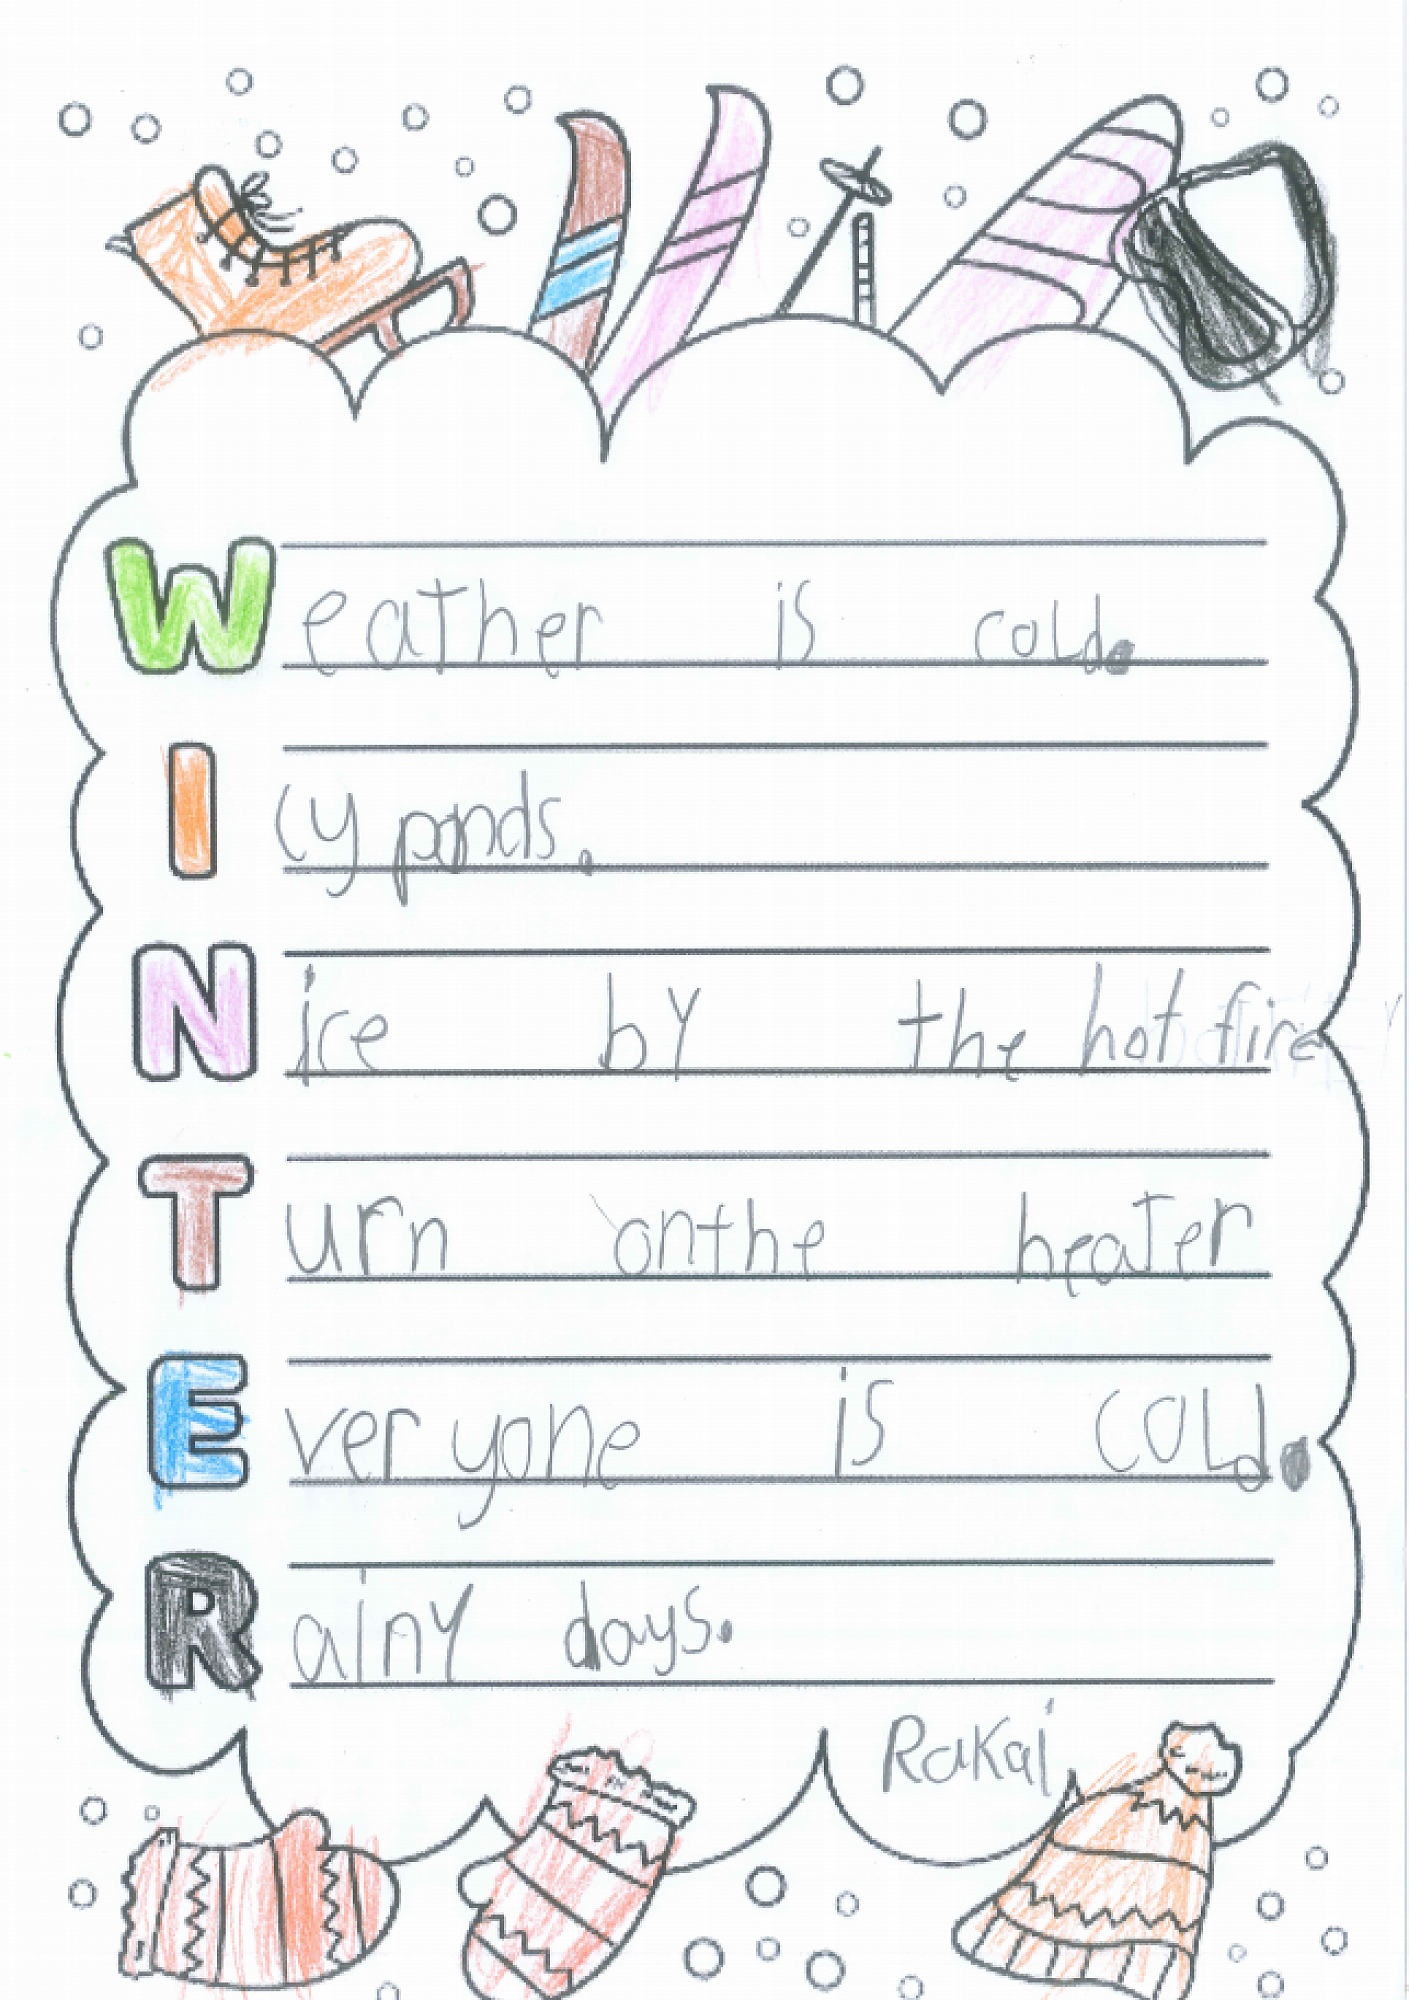 Weather is cold.
Icy ponds.
Nice by the hot fire
Turn onthe heater
Everyone is cold.
Rainy days.
Rakai